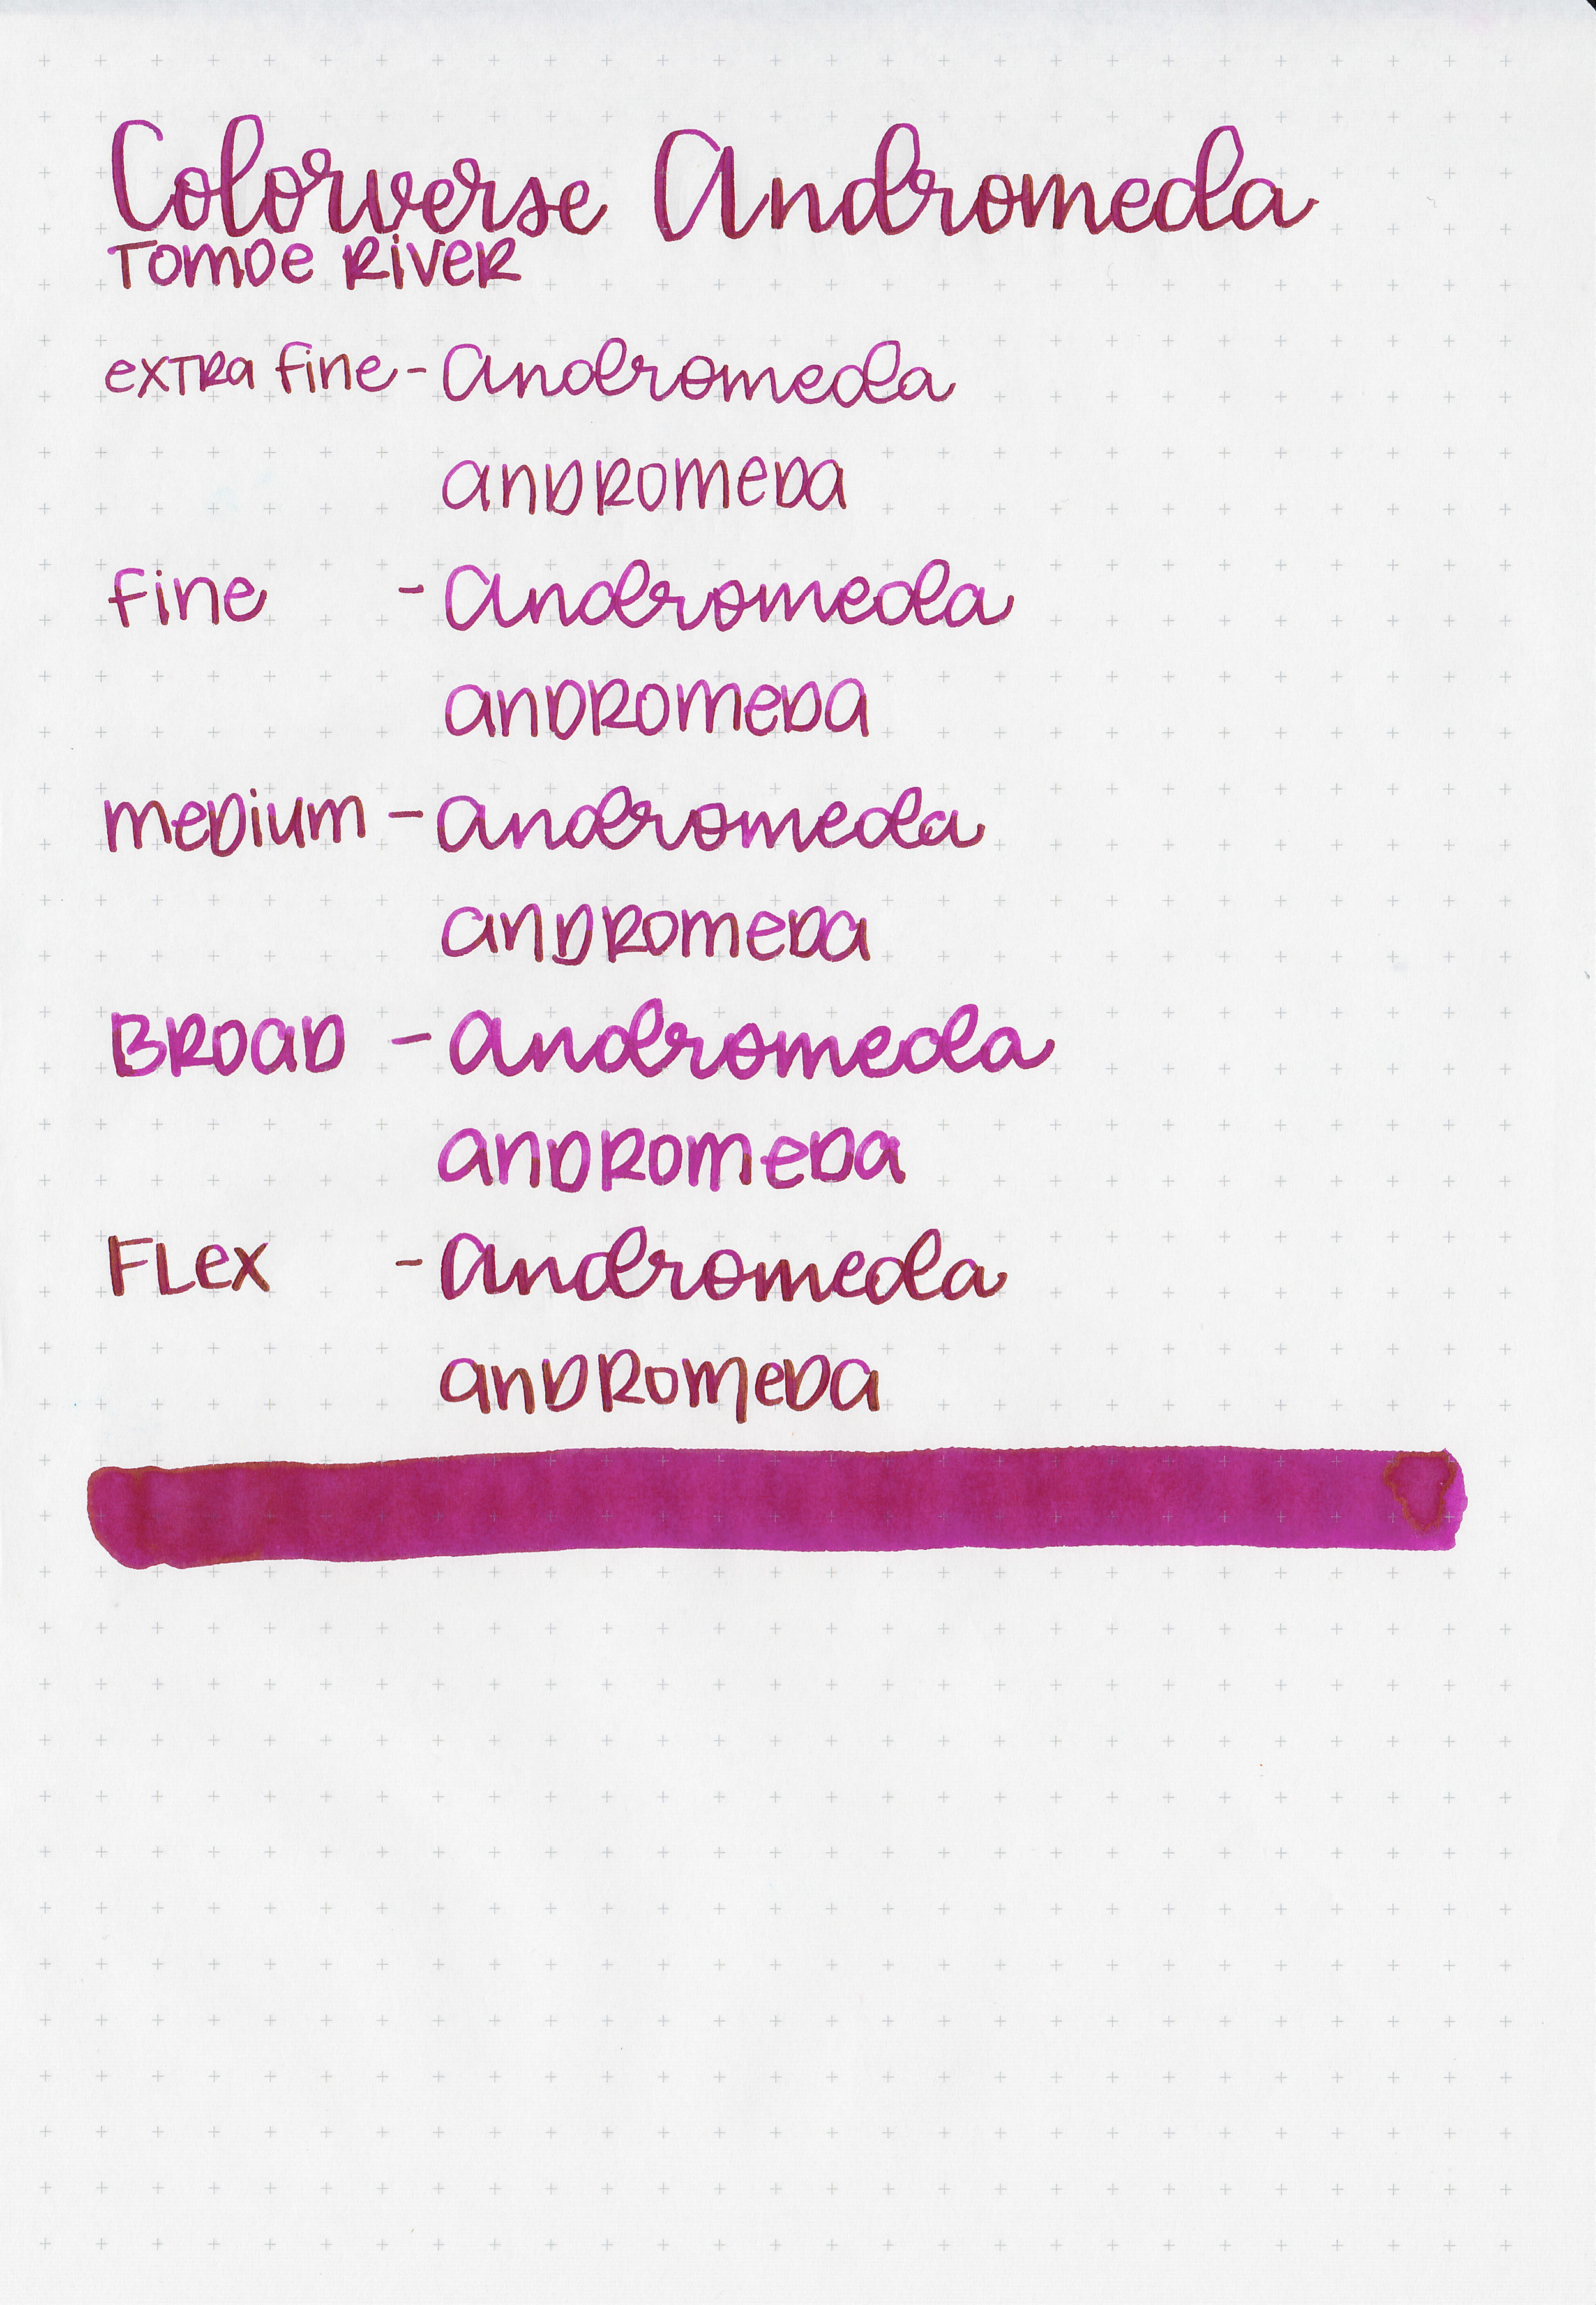 Colorverse Andromeda
Tomoe River
extra fine - Andromeda
andromeda
fine - Andromeda
andromeda
medium - Andromeda
andromeda
Broad - Andromeda
andromeda
Flex - Andromeda
andromeda